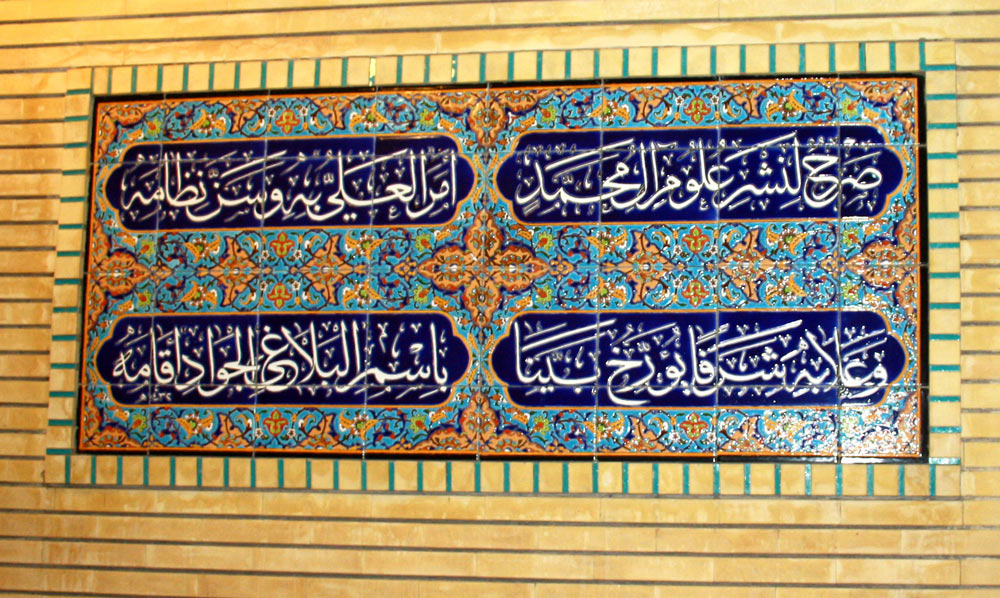 صرح لنشر علوم ال محمد
امر العلي به وسن نظامه
وعلا به شرفا يؤرخ بينا
باسم البلاغي الجواد أقامه
١٤٣٢هـ